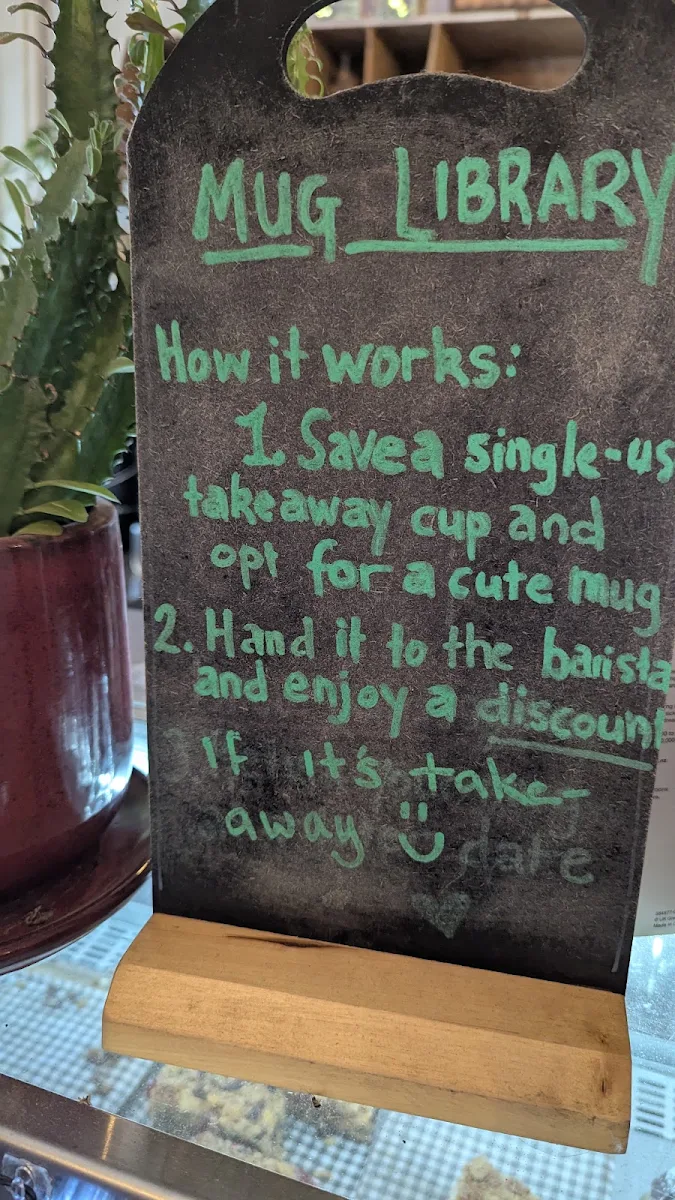 MUG LIBRARY
How it works:
1. Save a single-us
takeaway cup and
opt for a cute mug
2. Hand it to the barista
and enjoy a discount
If it's take-
away
date